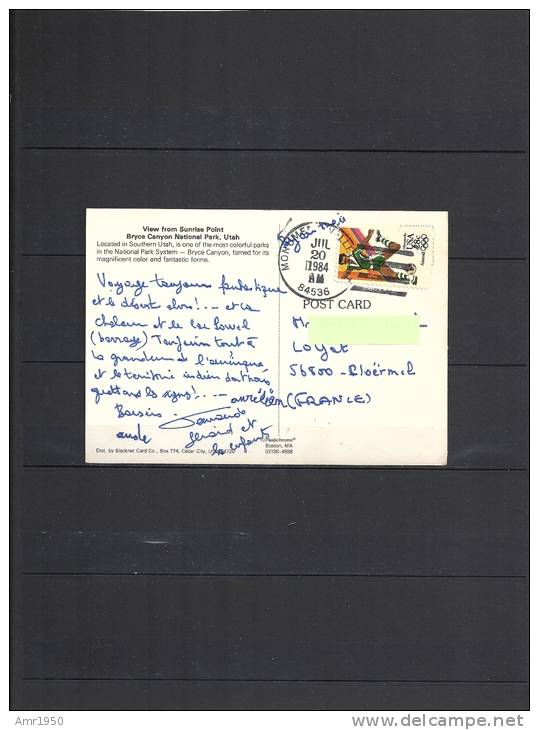 View from Sunrise Point
Bryce Canyon National Park, Utah
Located in Southern Utah, is one of the most colorful parks
in the National Park System — Bryce Canyon, famed for its
magnificent color and fantastic forms.
Voyage toujours fantastique
et le désert alors! .. et la
chaleur et le lac Powel
(barrage) Toujours tout à
la grandeur de l'amérique
et le territoire indien dont nous
quittons les
Baisers
aude gérard et
les enfants
aurélien
Dist. by Blackner Card Co., Box 774, Cedar City, 84720
Boston, MA
02130-4598
par avion
MONUMENT VALLEY
JUL
20
1984
AM
84536
USA
28c
POST CARD
Loyat
56800 - Ploërmel
(FRANCE)
Amr1950
delcampe.net